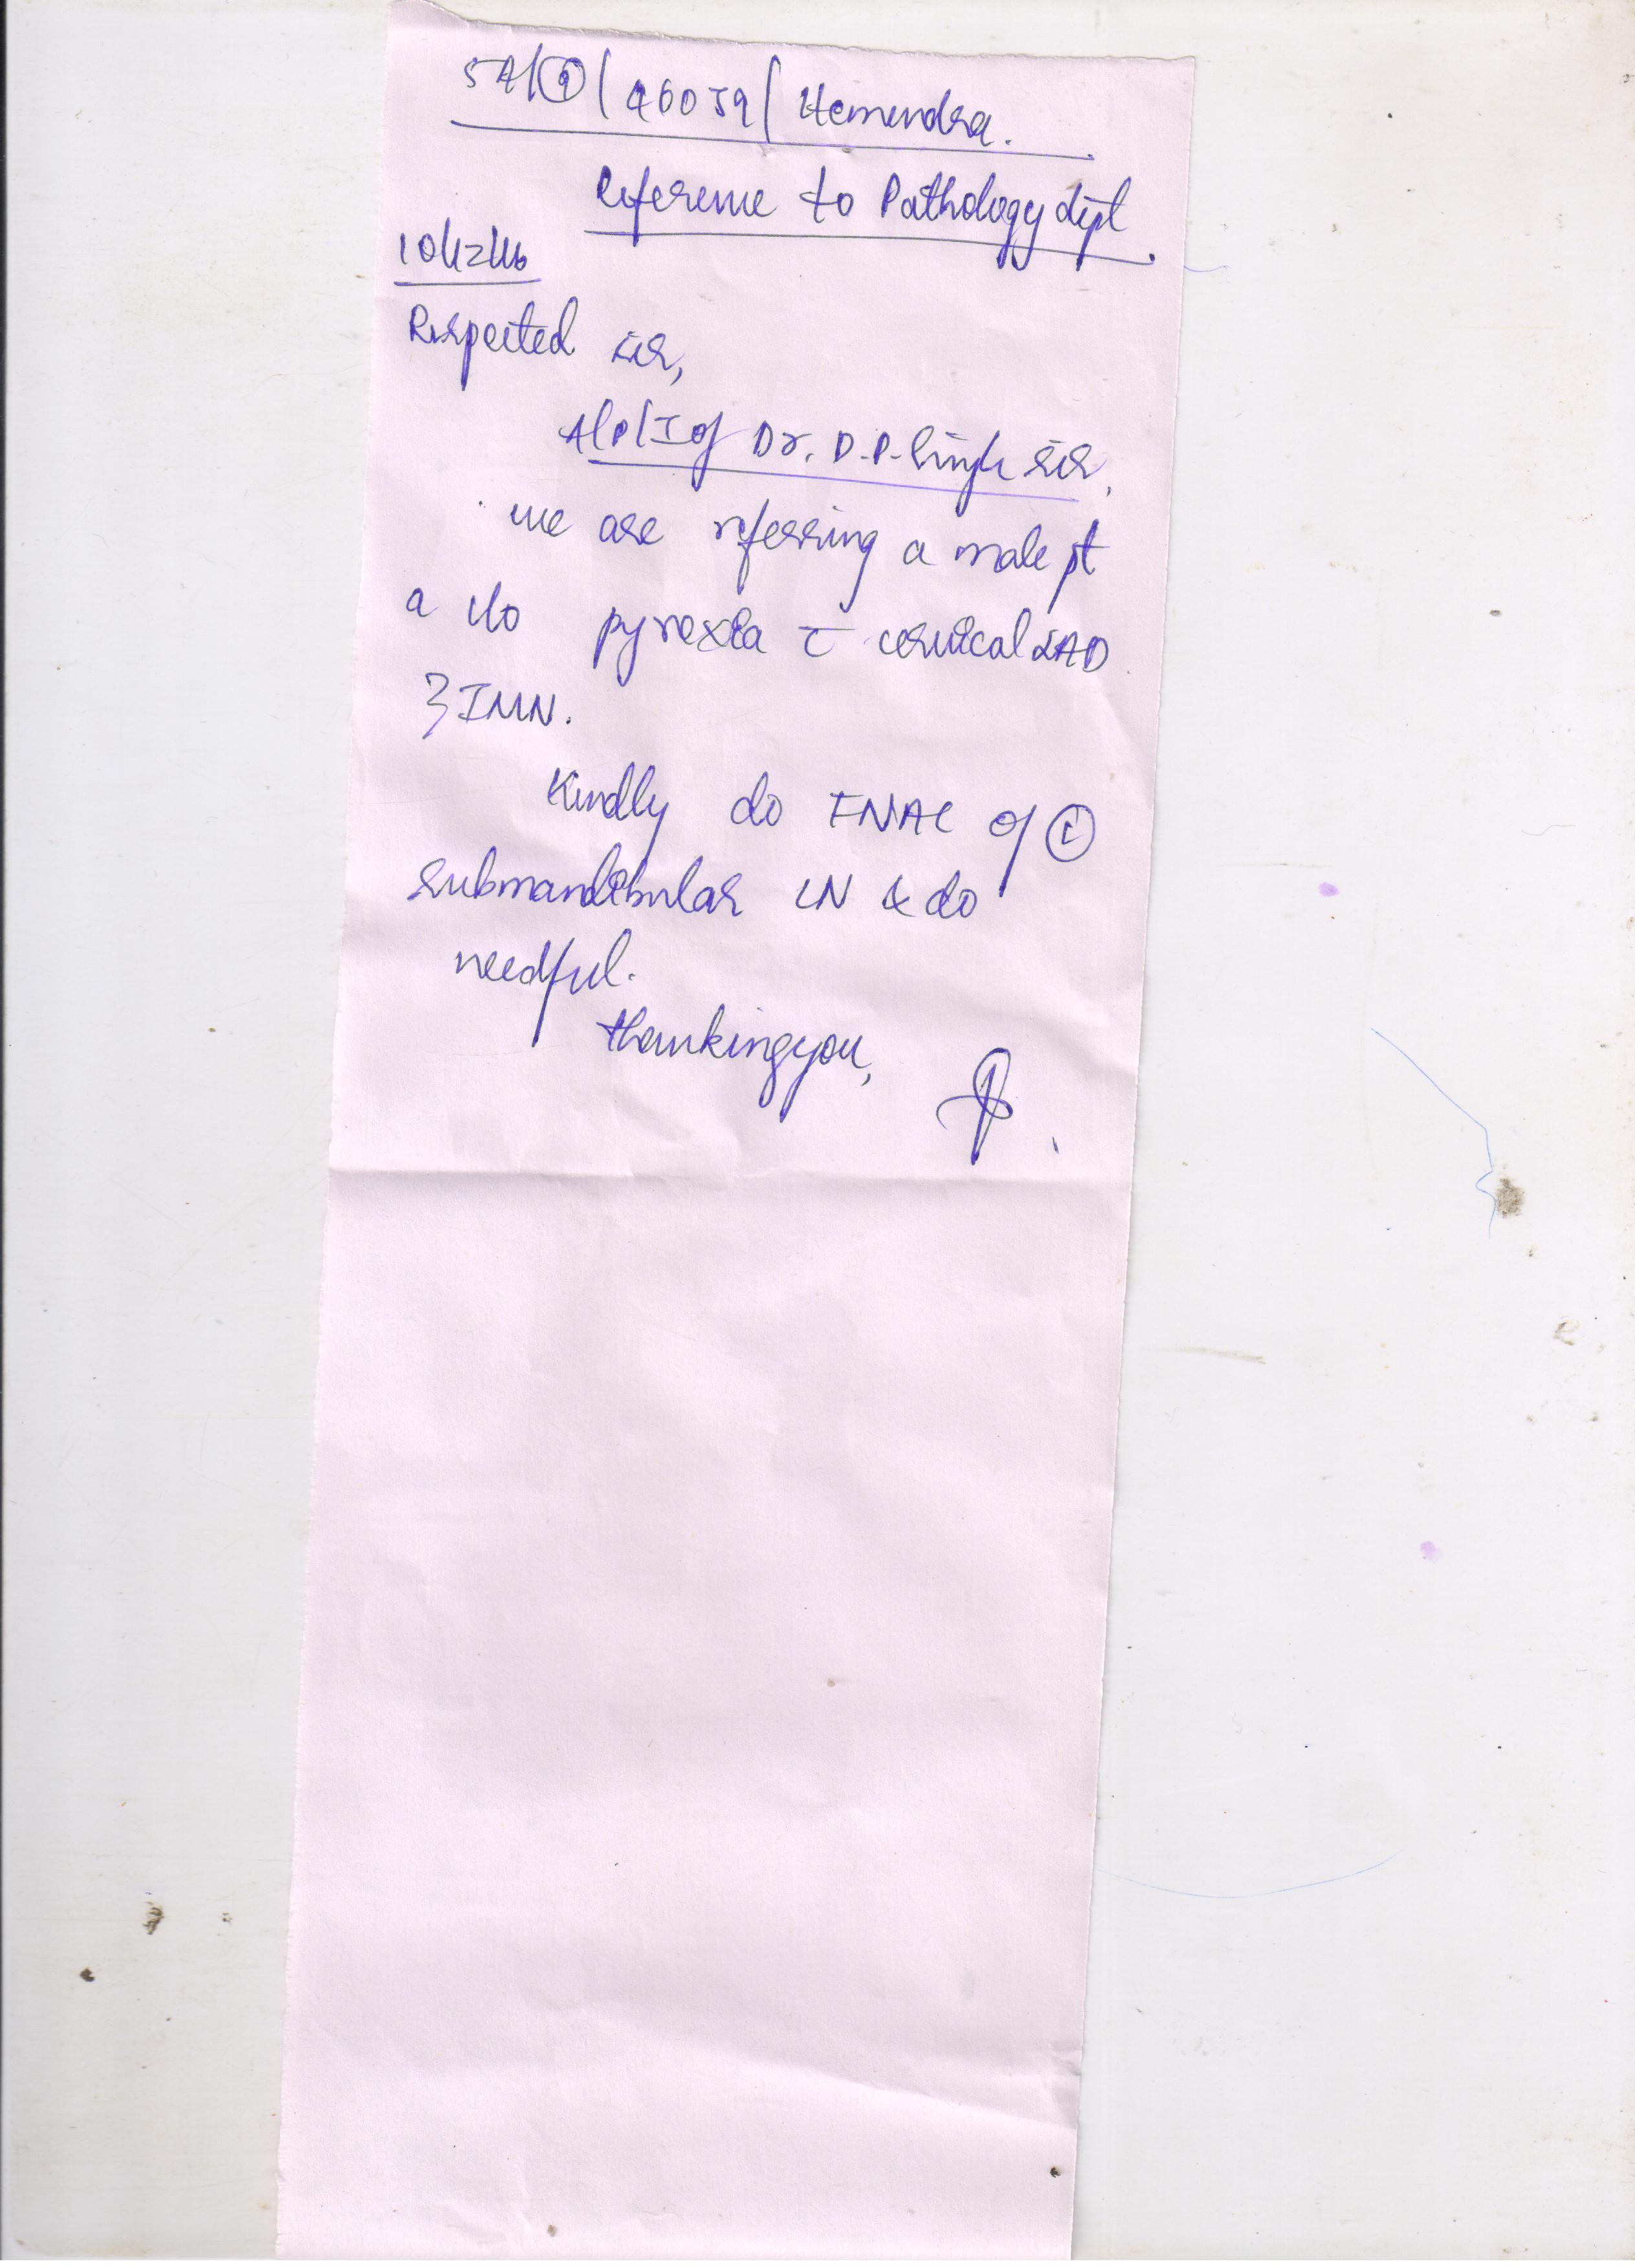 5A/①/46059/Hemendra.
Reference to Pathology dept.
10/12/16
Respected sir,
A/P/I of Dr. D.P. Singh sir,
we are referring a male pt
a c/o pyrexia c̄ cervical LAD
? IMN.
Kindly do FNAC of Ⓛ
submandibular LN & do
needful.
thanking you,